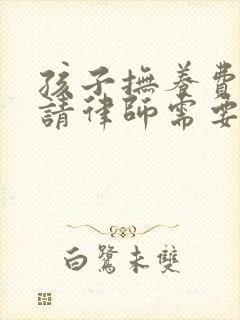 孩子撫養費
請律師需要
白鷺未雙